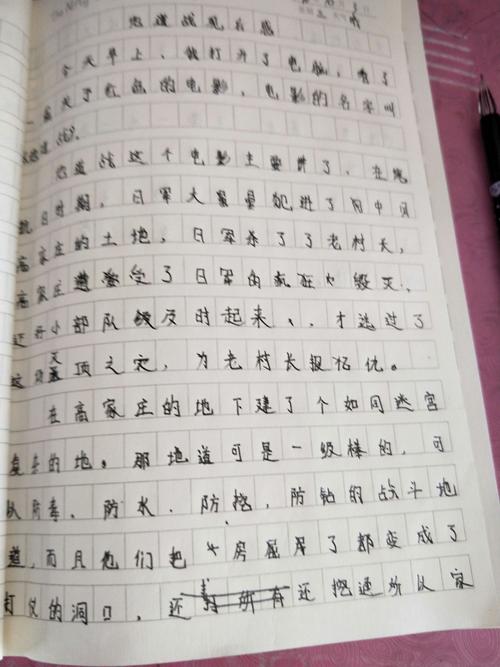 地道战观后感
今天早上，我打开了电脑，看了
一部关于红色的电影，电影的名字叫
《地道战》。
地道战这个电影主要讲了，在抗
日时期，日军大量量犯进了中
高家庄的土地，日军杀了了老村长，
高家庄遭受了日军的疯狂火毁灭，
还好小部队及时起来、，才逃过了
这灭顶之灾，为老村长报仇。
在高家庄的地下建了个如同迷宫
复杂的地。那地道可是一级棒的，可
以防毒、防水、防挖，防钻的战斗地
道，而且他们把房屋了都变成了
打仗的洞口，还还挖通所以家